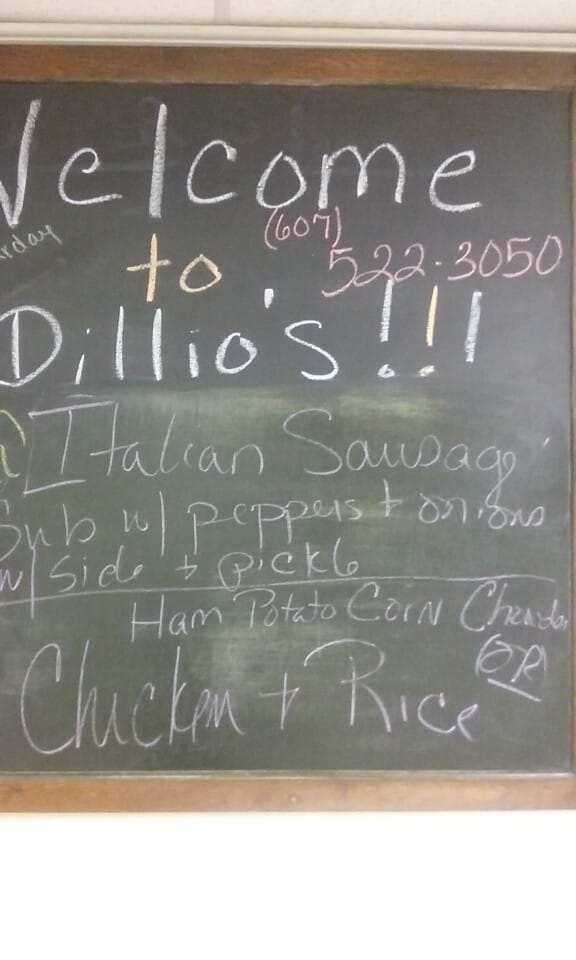 Welcome
(607)
to 522-3050
Dillio's!!!
Italian Sausage
Sub w/ peppers + onions
w/ side + pickle
Ham Potato Corn Chowder
(OR)
Chicken + Rice